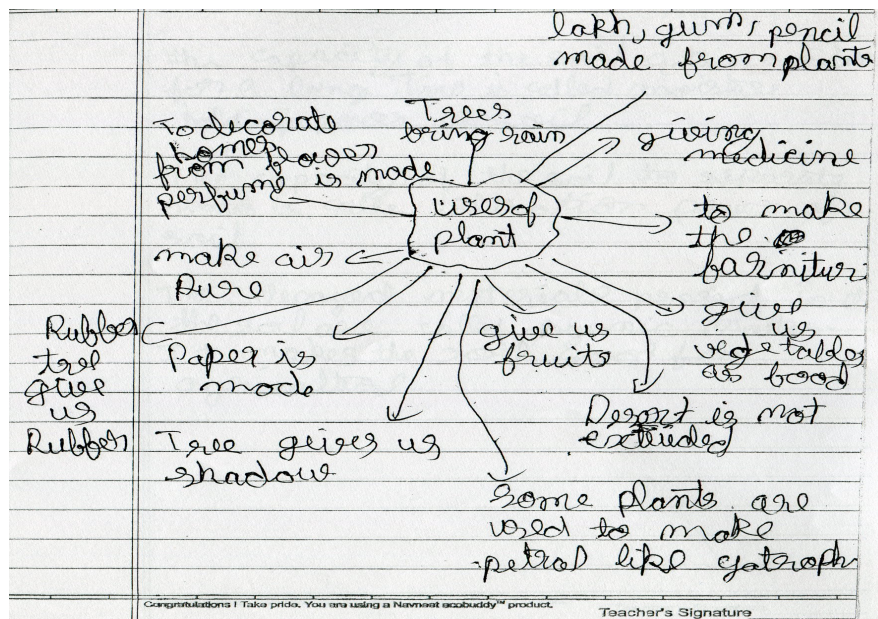 lakh, gum, pencil
made from plants
Trees
bring rain
To decorate
homes
from flower
perfume is made
giving
medicine
uses of
plant
to make
the
farnitur
make air
Pure
give
us
vegetables
as food
give us
fruits
Rubber
tree
give
us
Rubber
Paper is
made
Desort is not
extended
Tree gives us
shadow
some plants are
used to make
petrol like gatroph
Congratulations ! Take pride. You are using a Navneet ecobuddy™ product.
Teacher's Signature